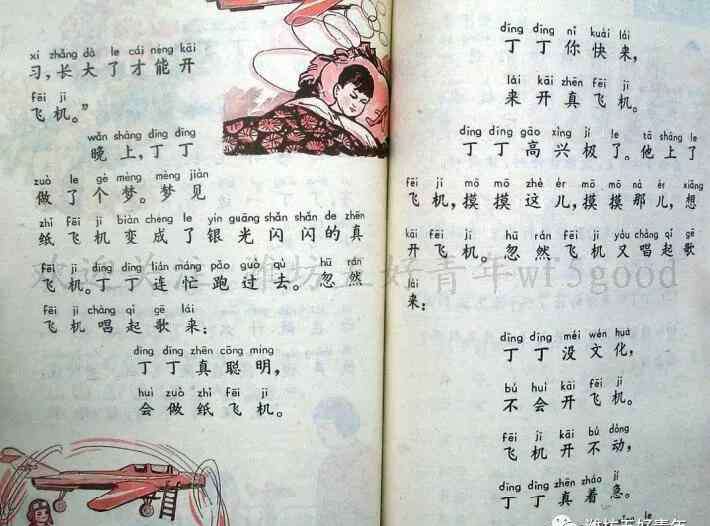 xí zhǎng dà le cái néng kāi
习，长大了才能开
fēi jī
飞机。”
wǎn shàng dīng dīng
晚上，丁丁
zuò le gè mèng mèng jiàn
做了个梦。梦见
zhǐ fēi jī biàn chéng le yín guāng shǎn shǎn de zhēn
纸飞机变成了银光闪闪的真
fēi jī dīng dīng lián máng pǎo guò qù hū rán
飞机。丁丁连忙跑过去。忽然
fēi jī chàng qǐ gē lái
飞机唱起歌来：
dīng dīng zhēn cōng míng
丁丁真聪明，
huì zuò zhǐ fēi jī
会做纸飞机。
dīng dīng nǐ kuài lái
丁丁你快来，
lái kāi zhēn fēi jī
来开真飞机。
dīng dīng gāo xìng jí le tā shàng le
丁丁高兴极了。他上了
fēi jī mō mō zhè ér mō mō nà ér xiǎng
飞机，摸摸这儿，摸摸那儿，想
kāi fēi jī hū rán fēi jī yòu chàng qǐ gē
开飞机。忽然飞机又唱起歌
lái
来：
dīng dīng méi wén huà
丁丁没文化，
bú huì kāi fēi jī
不会开飞机。
fēi jī kāi bú dòng
飞机开不动，
dīng dīng zhēn zháo jí
丁丁真着急。
欢迎关注 潍坊五好青年wf5good
潍坊五好青年